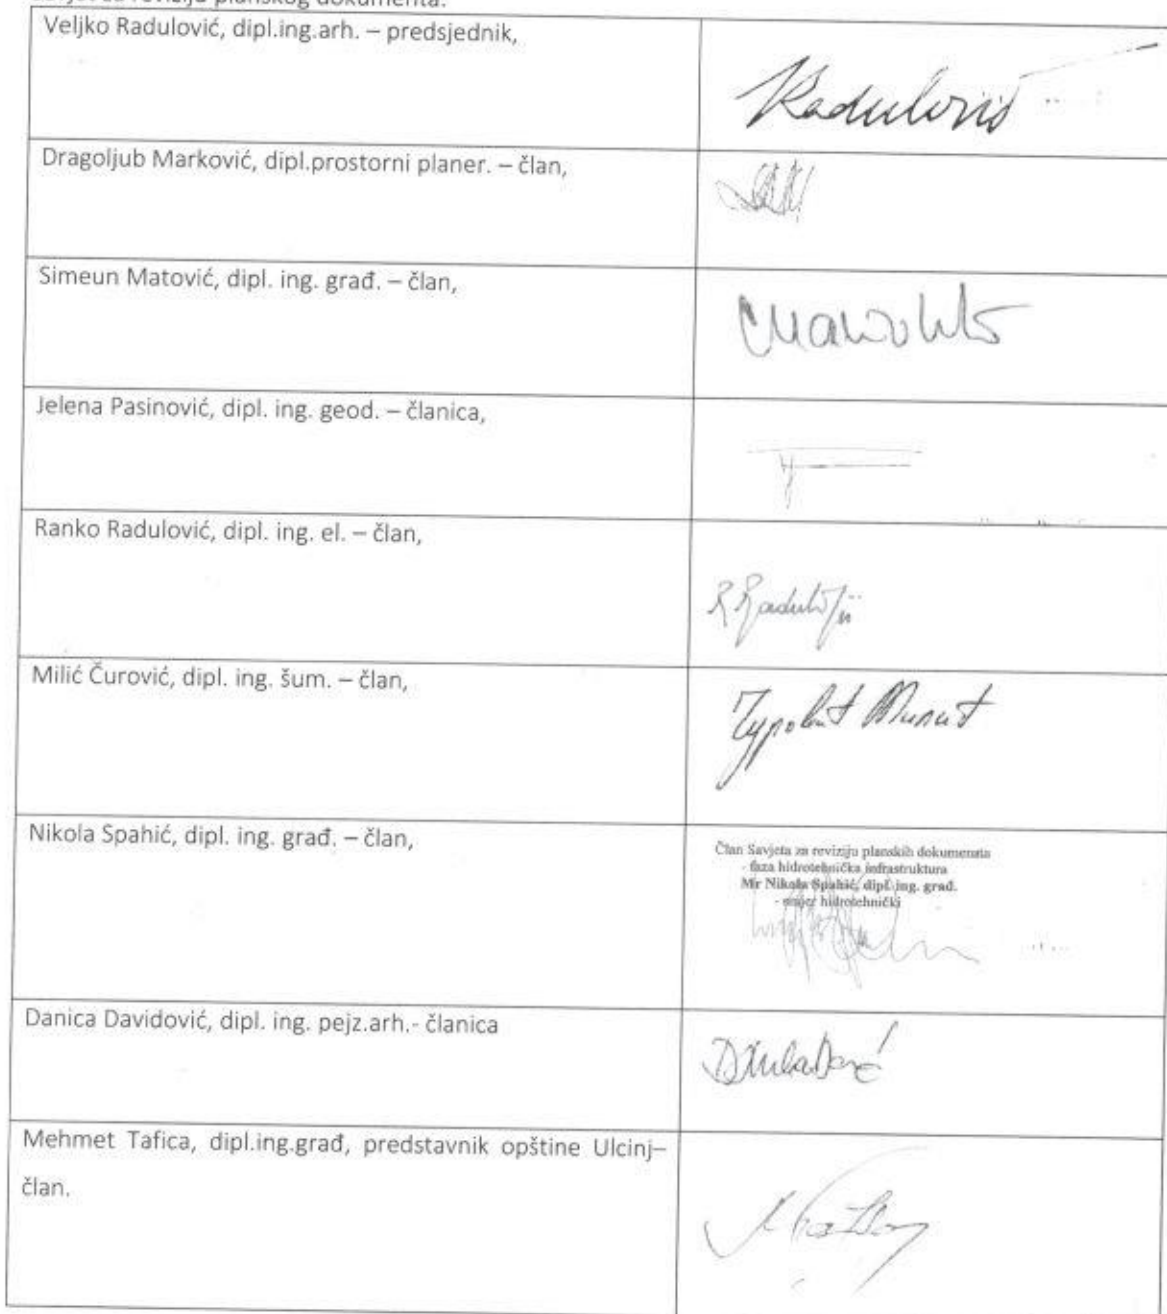 za reviziju planskog dokumenta:
Veljko Radulović, dipl.ing.arh. – predsjednik,
Radulović
Dragoljub Marković, dipl.prostorni planer. – član,
Simeun Matović, dipl. ing. građ. – član,
Jelena Pasinović, dipl. ing. geod. – članica,
Ranko Radulović, dipl. ing. el. – član,
Milić Čurović, dipl. ing. šum. – član,
Nikola Spahić, dipl. ing. građ. – član,
Član Savjeta za reviziju planskih dokumenata
- faza hidrotehnička infrastruktura
Mr Nikola Spahić, dipl. ing. građ.
- smjer hidrotehnički
Danica Davidović, dipl. ing. pejz.arh.- članica
Mehmet Tafica, dipl.ing.građ, predstavnik opštine Ulcinj–
član.